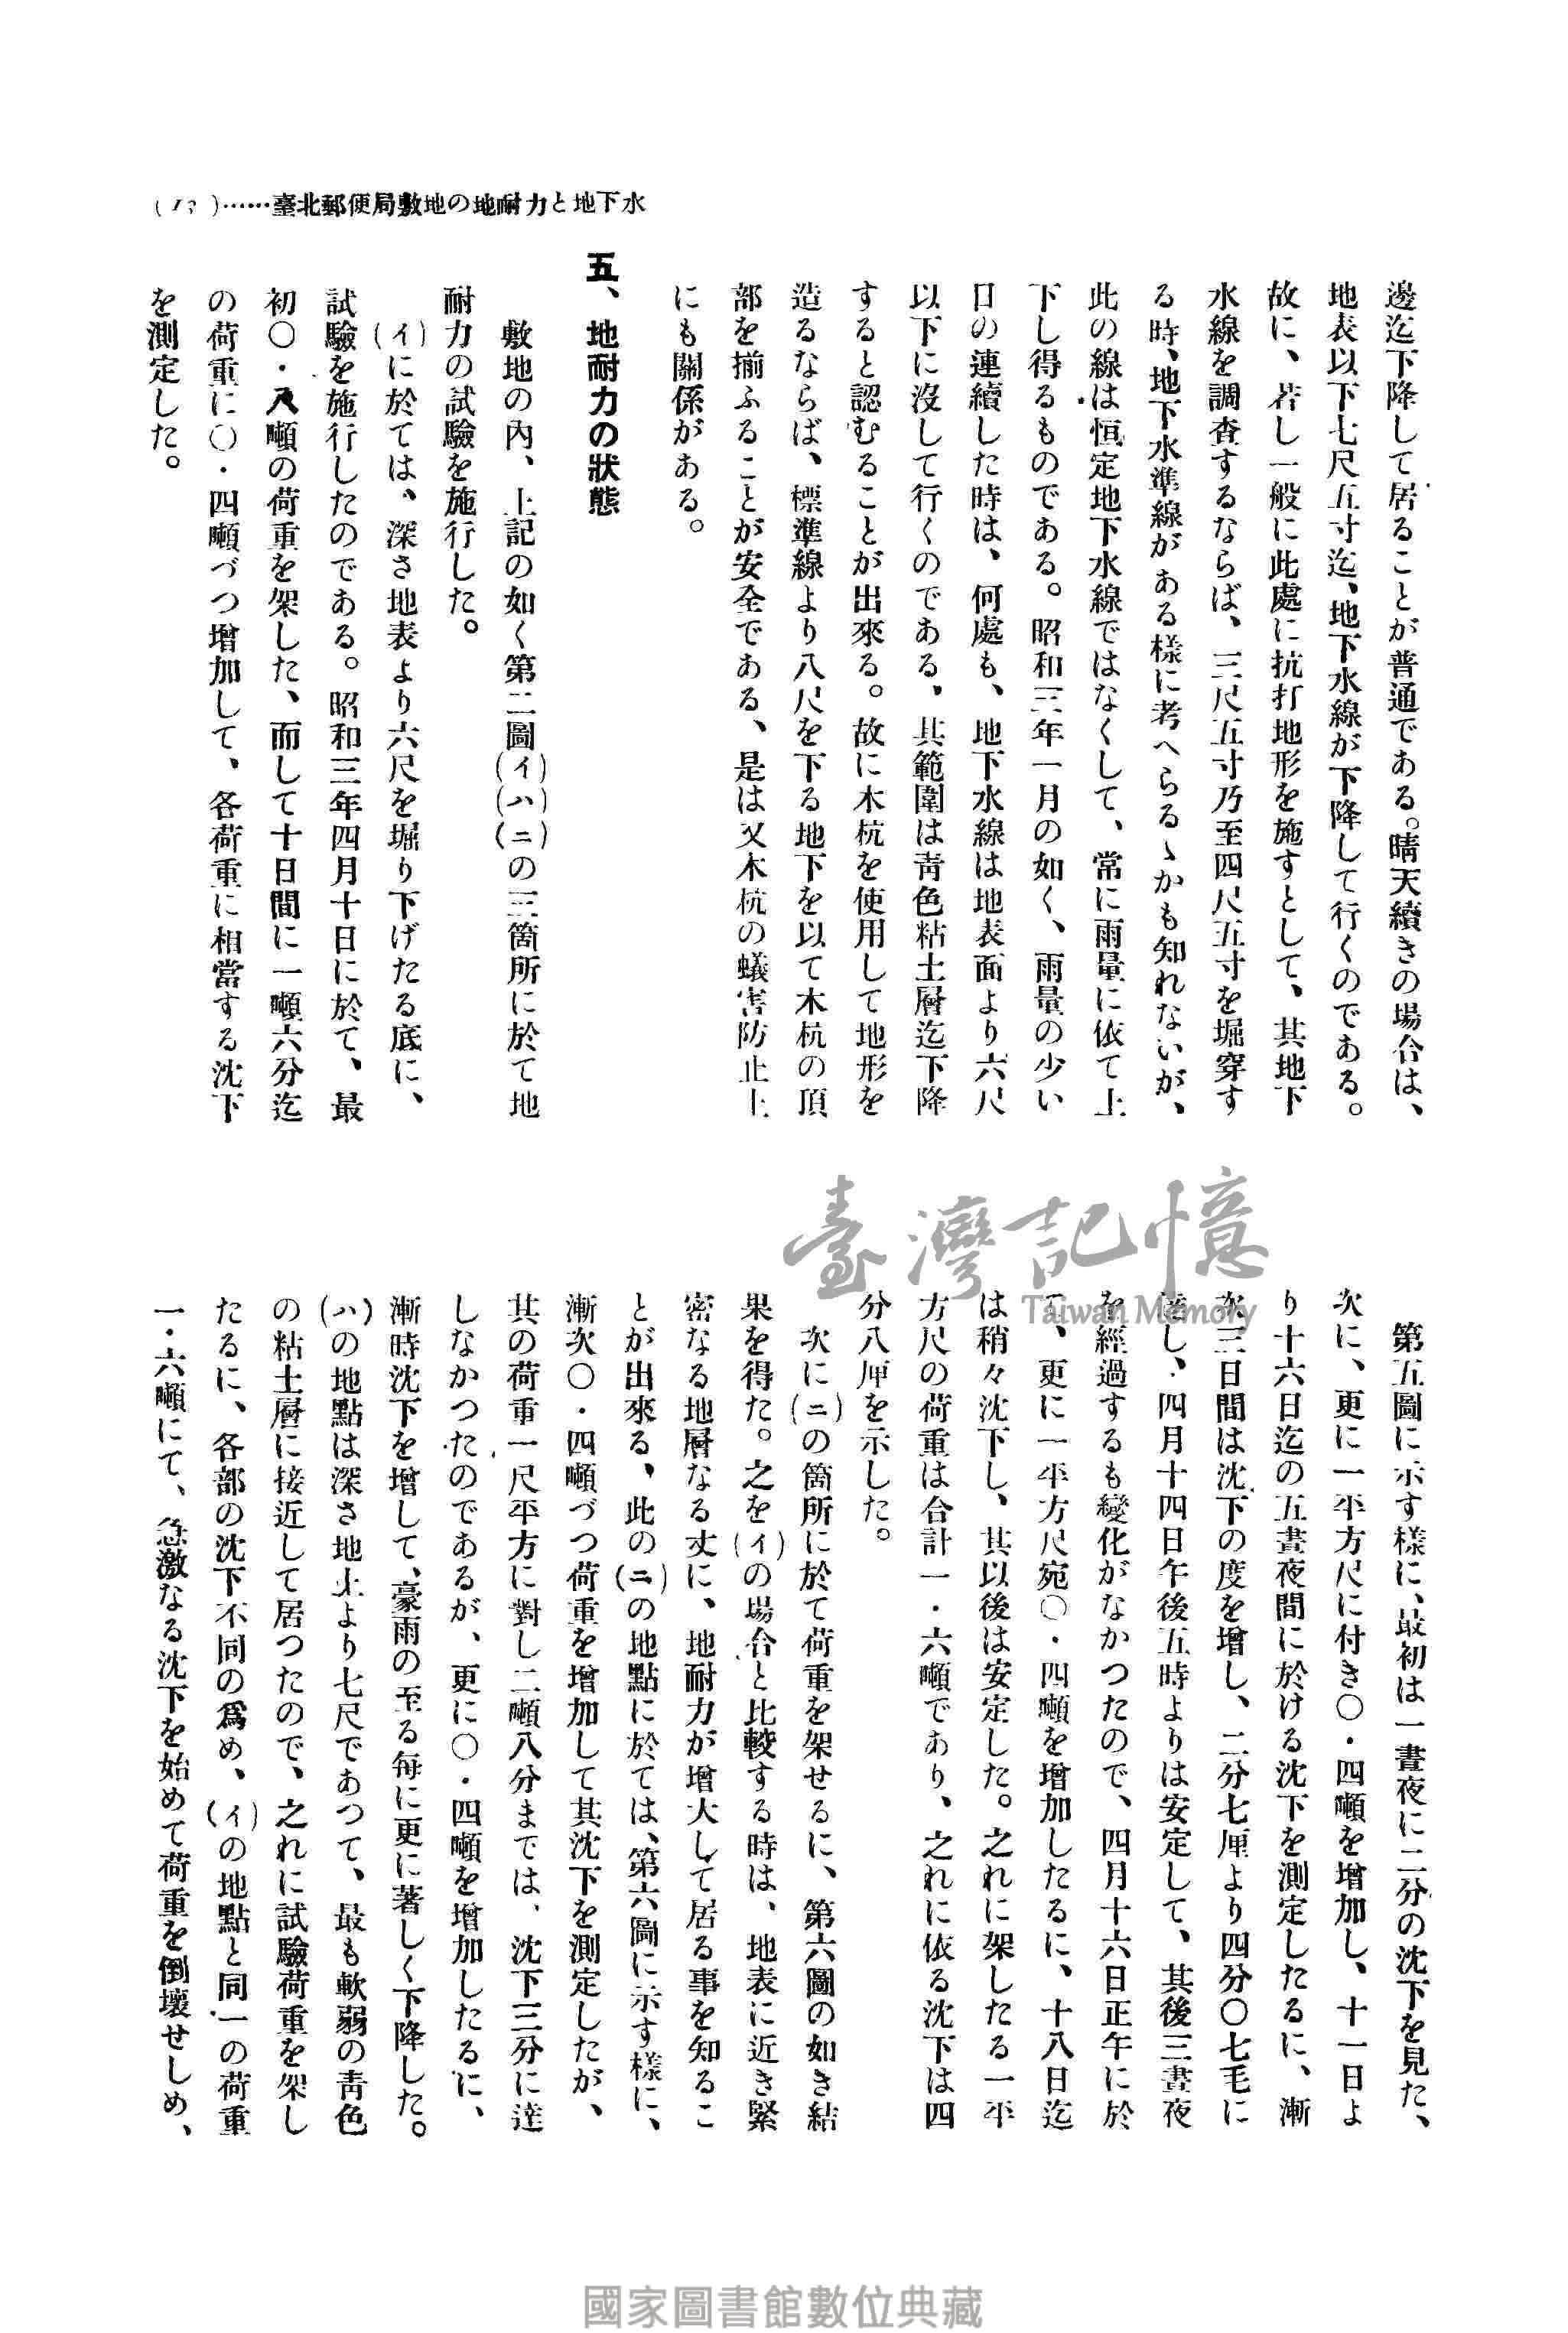 臺北郵便局敷地の地耐力と地下水……(13)
邊迄下降して居ることが普通である。晴天續きの場合は、
地表以下七尺五寸迄、地下水線が下降して行くのである。
故に、若し一般に此處に抗打地形を施すとして、其地下
水線を調査するならば、三尺五寸乃至四尺五寸を堀穿す
る時、地下水準線がある樣に考へらるゝかも知れないが、
此の線は恒定地下水線ではなくして、常に雨量に依て上
下し得るものである。昭和三年一月の如く、雨量の少い
日の連續した時は、何處も、地下水線は地表面より六尺
以下に沒して行くのである、其範圍は靑色粘土層迄下降
すると認むることが出來る。故に木杭を使用して地形を
造るならば、標準線より八尺を下る地下を以て木杭の頂
部を揃ふることが安全である、是は又木杭の蟻害防止上
にも關係がある。
五、地耐力の狀態
敷地の內、上記の如く第二圖(イ)(ハ)(ニ)の三箇所に於て地
耐力の試驗を施行した。
(イ)に於ては、深さ地表より六尺を堀り下げたる底に、
試驗を施行したのである。昭和三年四月十日に於て、最
初〇・八噸の荷重を架した、而して十日間に一噸六分迄
の荷重に〇・四噸づつ增加して、各荷重に相當する沈下
を測定した。
第五圖に示す樣に、最初は一晝夜に二分の沈下を見た、
次に、更に一平方尺に付き〇・四噸を增加し、十一日よ
り十六日迄の五晝夜間に於ける沈下を測定したるに、漸
次三日間は沈下の度を增し、二分七厘より四分〇七毛に
達し、四月十四日午後五時よりは安定して、其後三晝夜
を經過するも變化がなかつたので、四月十六日正午に於
て、更に一平方尺宛〇・四噸を增加したるに、十八日迄
は稍々沈下し、其以後は安定した。之れに架したる一平
方尺の荷重は合計一・六噸であり、之れに依る沈下は四
分八厘を示した。
次に(ニ)の箇所に於て荷重を架せるに、第六圖の如き結
果を得た。之を(イ)の場合と比較する時は、地表に近き緊
密なる地層なる丈に、地耐力が增大して居る事を知るこ
とが出來る、此の(ニ)の地點に於ては、第六圖に示す樣に、
漸次〇・四噸づつ荷重を增加して其沈下を測定したが、
其の荷重一尺平方に對し二噸八分までは、沈下三分に達
しなかつたのであるが、更に〇・四噸を增加したるに、
漸時沈下を增して、豪雨の至る每に更に著しく下降した。
(ハ)の地點は深さ地上より七尺であつて、最も軟弱の靑色
の粘土層に接近して居つたので、之れに試驗荷重を架し
たるに、各部の沈下不同の爲め、(イ)の地點と同一の荷重
一・六噸にて、急激なる沈下を始めて荷重を倒壞せしめ、
臺灣記憶
Taiwan Memory
國家圖書館數位典藏